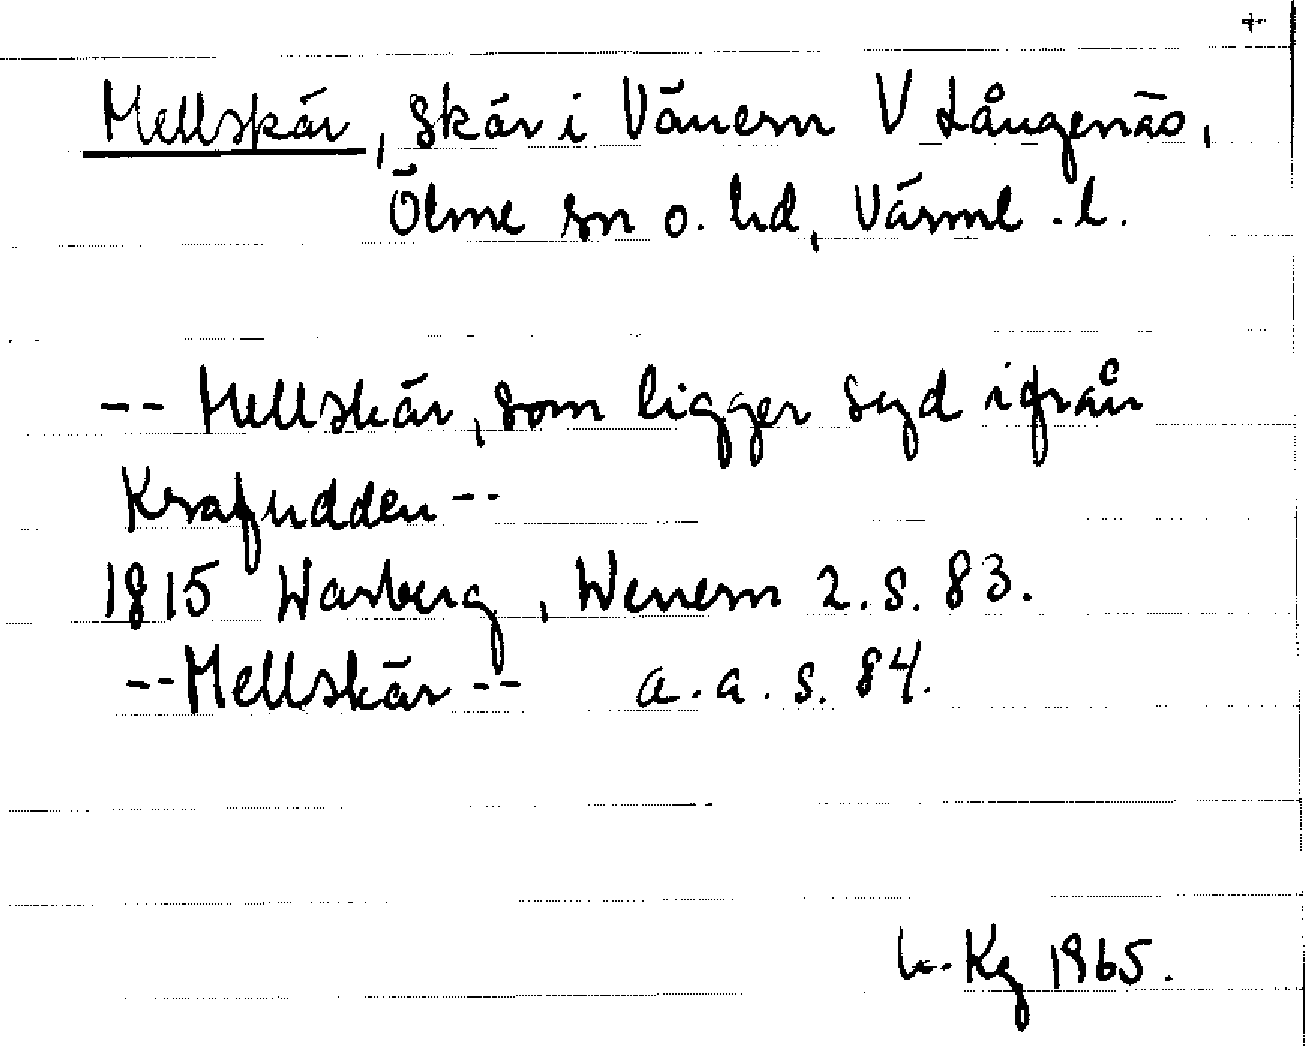 +
Mellskär, skär i Vänern V Långenäs,
Ölme sn o. hd, Värml. l.
-- Mellskär, som ligger syd ifrån
Krafudden --
1815 Warberg, Wenern 2. s. 83.
-- Mellskär -- a. a. s. 84.
Kg 1965.